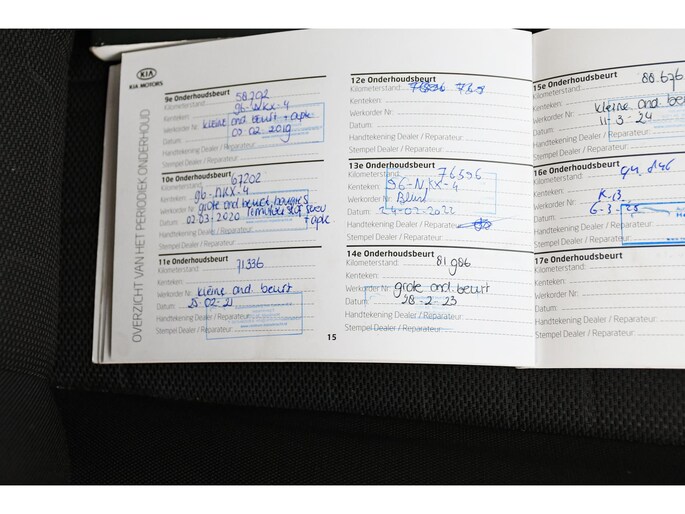 KIA
KIA MOTORS
OVERZICHT VAN HET PERIODIEK ONDERHOUD
9e Onderhoudsbeurt
Kilometerstand: 58.702
Kenteken: 96-NKX-4
Werkorder Nr: kleine ond beurt + apk
Datum: 09 02 2019
Handtekening Dealer / Reparateur:
Stempel Dealer / Reparateur:
10e Onderhoudsbeurt
Kilometerstand: 67202
Kenteken: 96-NKX-4
Werkorder Nr: grote ond beurt,
Datum: 02-03-2020 + apk
Handtekening Dealer / Reparateur:
Stempel Dealer / Reparateur:
11e Onderhoudsbeurt
Kilometerstand: 71336
Kenteken:
Werkorder Nr: kleine ond beurt
Datum: 25-02-21
Handtekening Dealer / Reparateur:
Stempel Dealer / Reparateur:
12e Onderhoudsbeurt
Kilometerstand:
Kenteken:
Werkorder Nr:
Datum:
Handtekening Dealer / Reparateur:
Stempel Dealer / Reparateur:
13e Onderhoudsbeurt
Kilometerstand: 76596
Kenteken: 96-NKX-4
Werkorder Nr: Beurt
Datum: 24-02-2022
Handtekening Dealer / Reparateur:
Stempel Dealer / Reparateur:
14e Onderhoudsbeurt
Kilometerstand: 81986
Kenteken:
Werkorder Nr: grote ond. beurt
Datum: 28-2-23
Handtekening Dealer / Reparateur:
Stempel Dealer / Reparateur:
15
15e Onderhoudsbeurt
Kilometerstand: 88.676
Kenteken:
Werkorder Nr: kleine ond beurt
Datum: 11-3-24
Handtekening Dealer
Stempel Dealer / Re
16e Onderhoudsbeurt
Kilometerstand:
Kenteken:
Werkorder Nr:
Datum: 6-3-25
Handtekening Dealer
Stempel Dealer / Re
17e Onderhoudsbeurt
Kilometerstand:
Kenteken:
Werkorder Nr:
Datum:
Handtekening Dealer
Stempel Dealer / Re